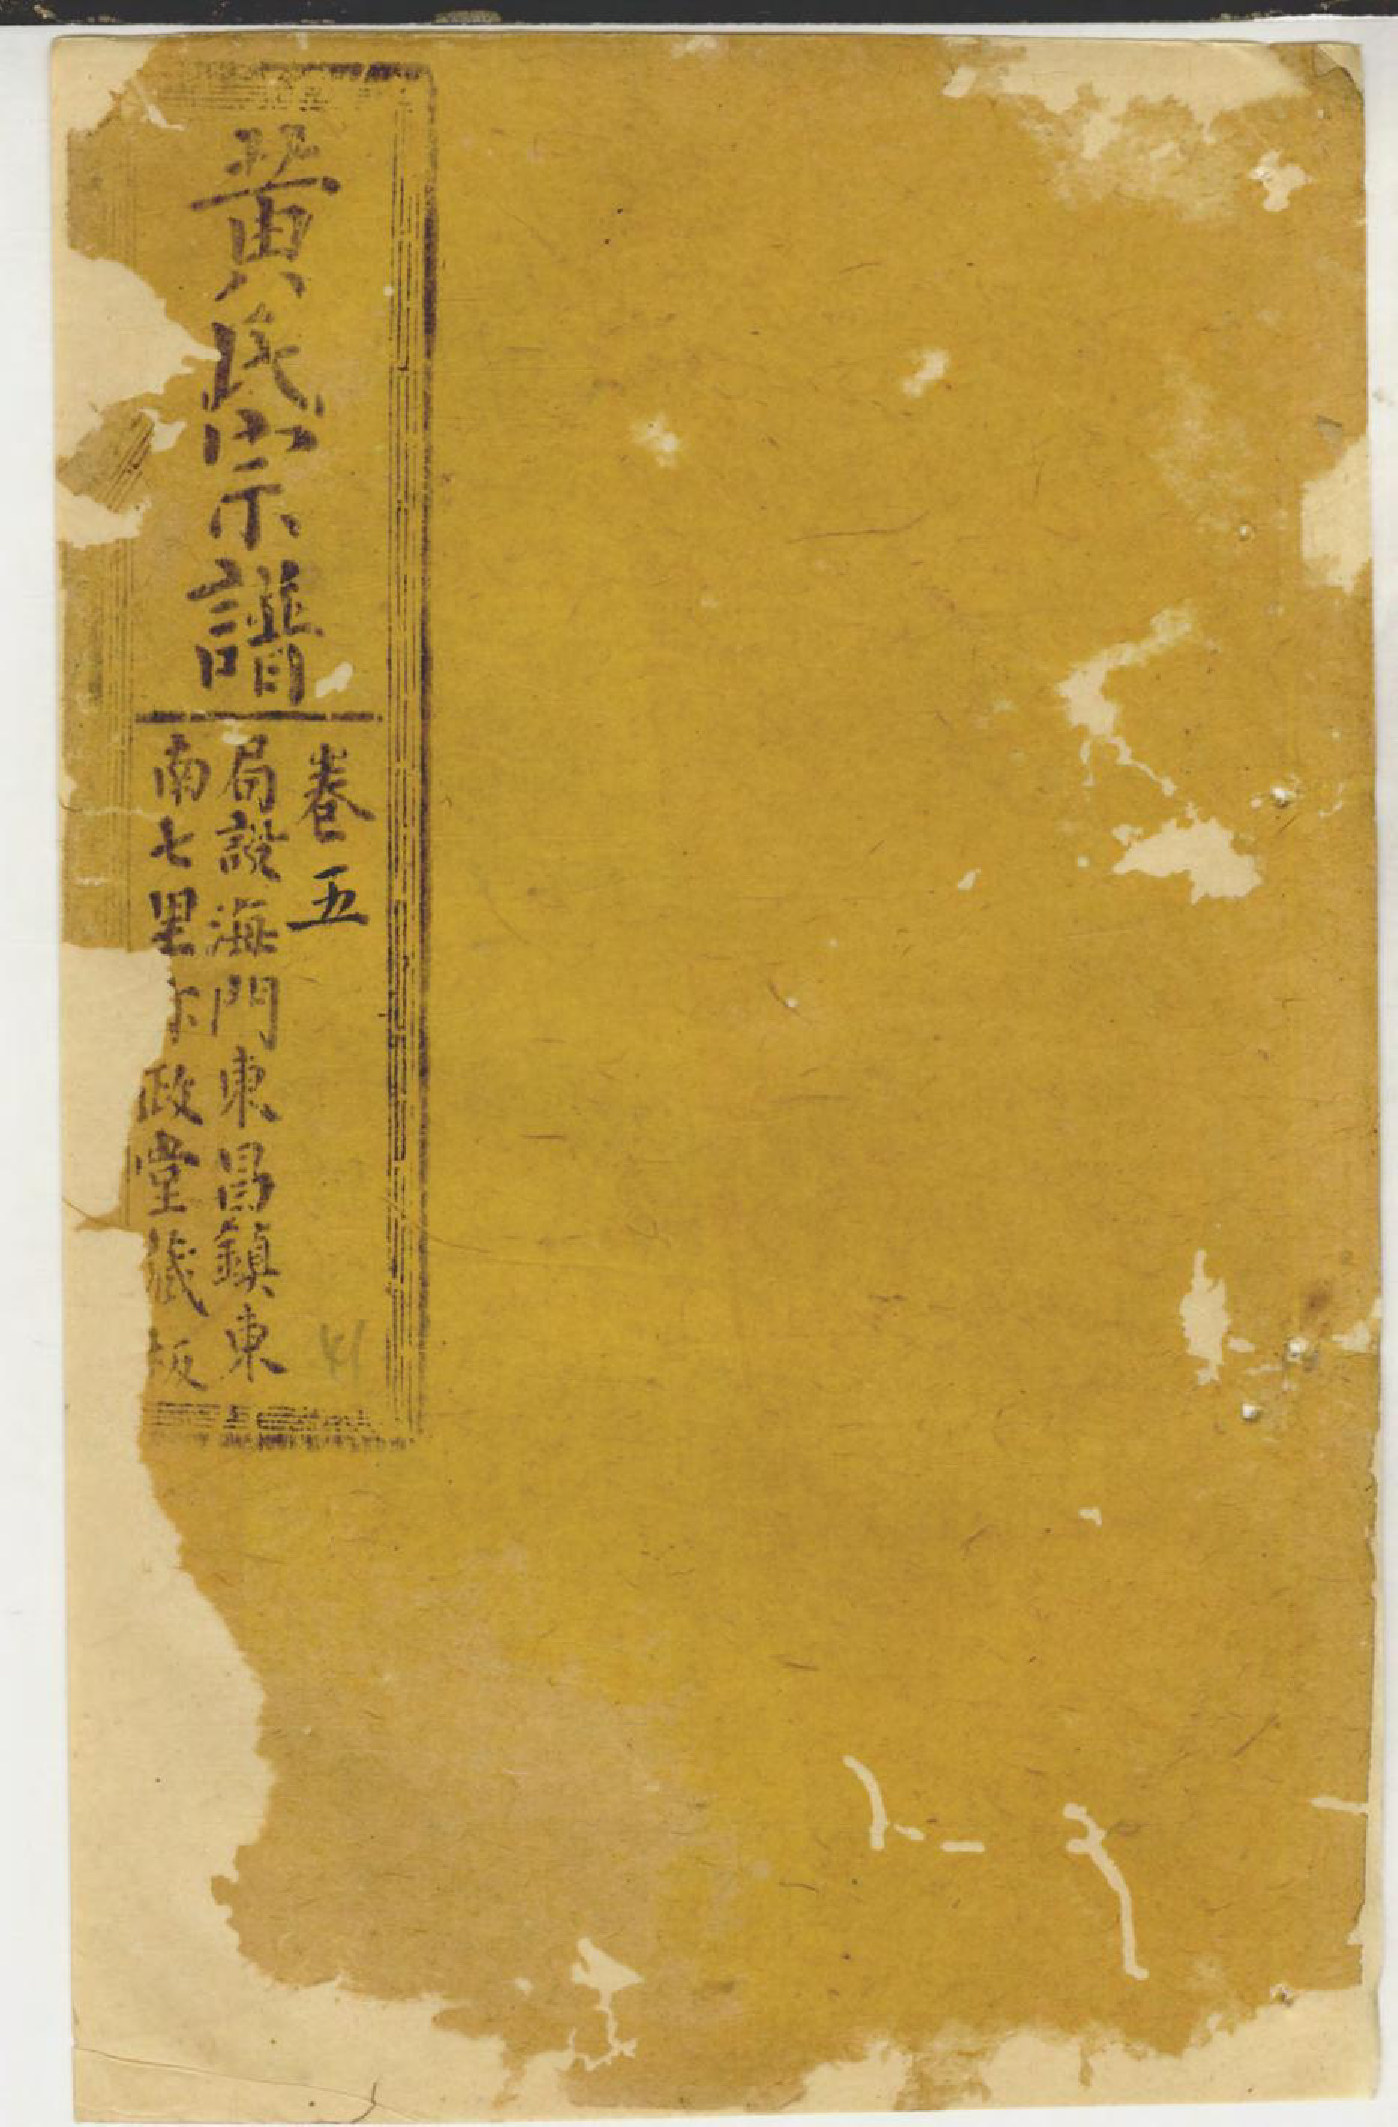 黃氏宗譜
卷五
局設海門東昌鎮東
南七里 政堂藏板